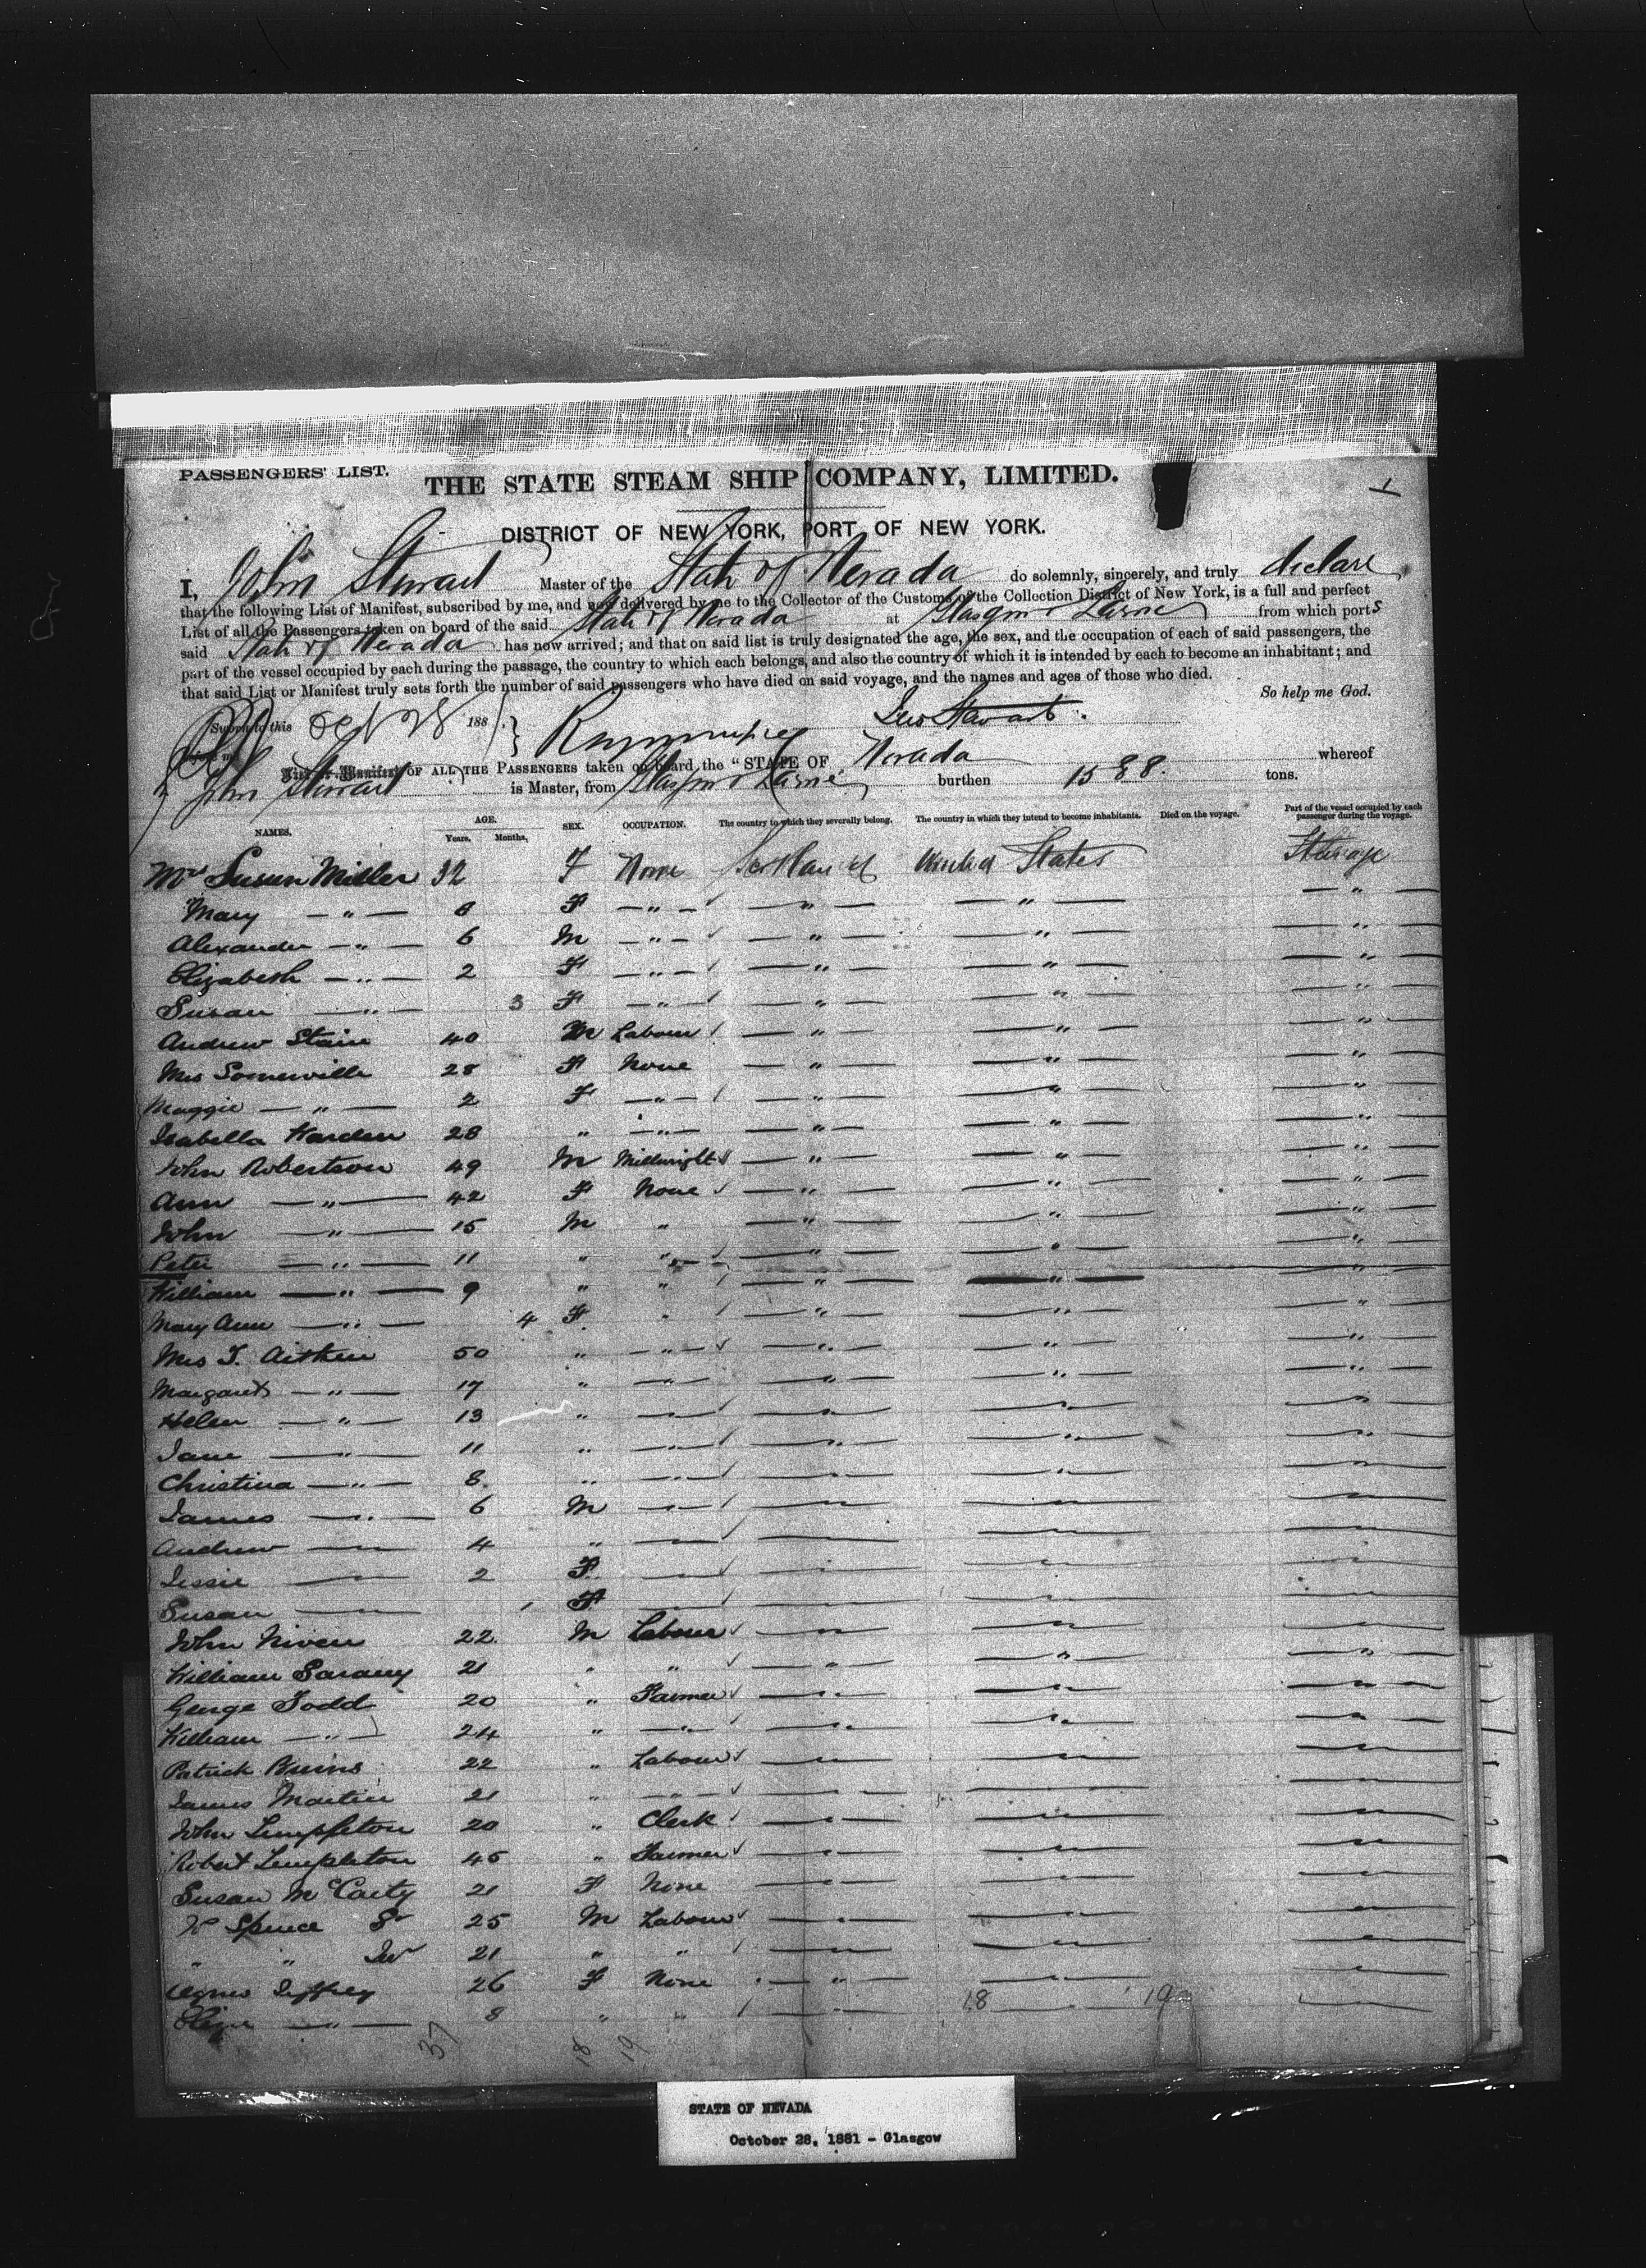 PASSENGERS' LIST.
THE STATE STEAM SHIP COMPANY, LIMITED.
1
DISTRICT OF NEW YORK, PORT OF NEW YORK.
I, John Stewart Master of the State of Nevada do solemnly, sincerely, and truly declare
that the following List of Manifest, subscribed by me, and now delivered by me to the Collector of the Customs of the Collection District of New York, is a full and perfect
List of all the Passengers taken on board of the said State of Nevada at Glasgow & Larne from which ports
said State of Nevada has now arrived; and that on said list is truly designated the age, the sex, and the occupation of each of said passengers, the
part of the vessel occupied by each during the passage, the country to which each belongs, and also the country of which it is intended by each to become an inhabitant; and
that said List or Manifest truly sets forth the number of said passengers who have died on said voyage, and the names and ages of those who died.
So help me God.
Sworn to this Oct 28 1881 Jno Stewart
List or Manifest OF ALL THE PASSENGERS taken on board the "STATE OF Nevada whereof
John Stewart is Master, from Glasgow & Larne burthen 1588. tons.
NAMES. AGE. Years. Months. SEX. OCCUPATION. The country to which they severally belong. The country in which they intend to become inhabitants. Died on the voyage. Part of the vessel occupied by each passenger during the voyage.
Mrs Susan Miller 32 F None Scotland United States Steerage
Mary — " — 8 F — " — — " — — " — — " —
Alexander — " — 6 M — " — — " — — " — — " —
Elizabeth — " — 2 F — " — — " — — " — — " —
Susan — " — 3 F — " — — " — — " — — " —
Andrew 40 M Labour — " — — " — — " —
Mrs Somerville 28 F None — " — — " — — " —
Maggie — " — 2 F — " — — " — — " — — " —
Isabella Harden 28 " — " — — " — — " — — " —
John Robertson 49 M Millwright — " — — " — — " —
Ann — " — 42 F None — " — — " — — " —
John — " — 15 M " — " — — " — — " —
Peter — " — 11 " " — " — — " — — " —
William — " — 9 " " — " — — " — — " —
Mary Ann — " — 4 F " — " — — " — — " —
Mrs T. Aitken 50 " — " — — " — — " — — " —
Margaret — " — 17 " — " — — " — — " — — " —
Helen — " — 13 " — " — — " — — " — — " —
Jane — " — 11 " — " — — " — — " — — " —
Christina — " — 8 " — " — — " — — " — — " —
James — " — 6 M — " — — " — — " — — " —
Andrew — " — 4 " — " — — " — — " — — " —
Jessie — " — 2 F — " — — " — — " — — " —
Susan — " — 1 F — " — — " — — " — — " —
John Niven 22 M Labour — " — — " — — " —
William 21 " " — " — — " — — " —
George Todd 20 " Farmer — " — — " — — " —
William — " — 24 " — " — — " — — " — — " —
Patrick Burns 22 " Labour — " — — " — — " —
James Martin 21 " — " — — " — — " — — " —
John Templeton 20 " Clerk — " — — " — — " —
Robert Templeton 45 " Farmer — " — — " — — " —
Susan McCarty 21 F None — " — — " — — " —
Spence Sr 25 M Labour — " — — " — — " —
" " Jr 21 " " — " — — " — — " —
Agnes Jeffrey 26 F None — " — — " — — " —
Eliza — " — 8 " " — " — 18 — " — 19 — " —
37 18 19
STATE OF NEVADA
October 28, 1881 - Glasgow